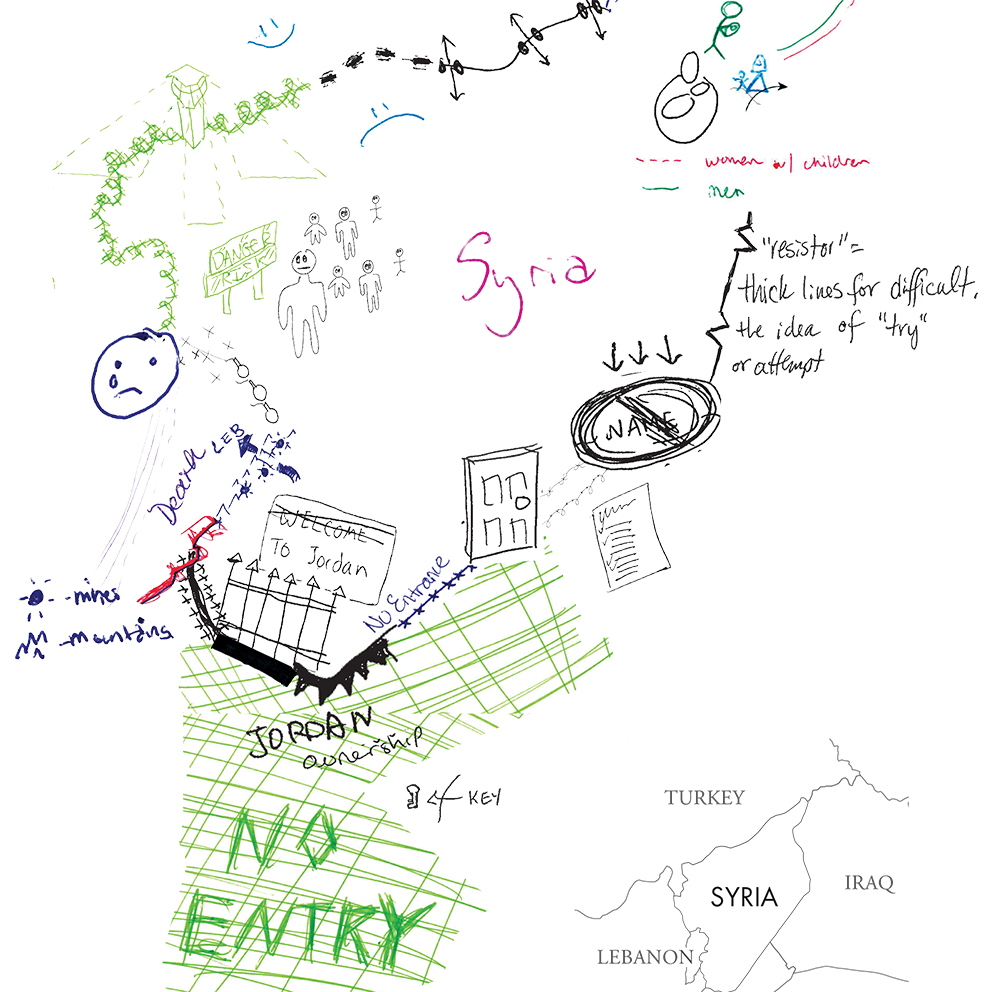 women w/ children
men
"resistor" =
thick lines for difficult.
the idea of "try"
or attempt
DANGER
RISK
Syria
NAME
LEB
WELCOME
TO Jordan
No Entrance
-mines
-mountains
JORDAN
ownership
KEY
NO
ENTRY
TURKEY
SYRIA
IRAQ
LEBANON